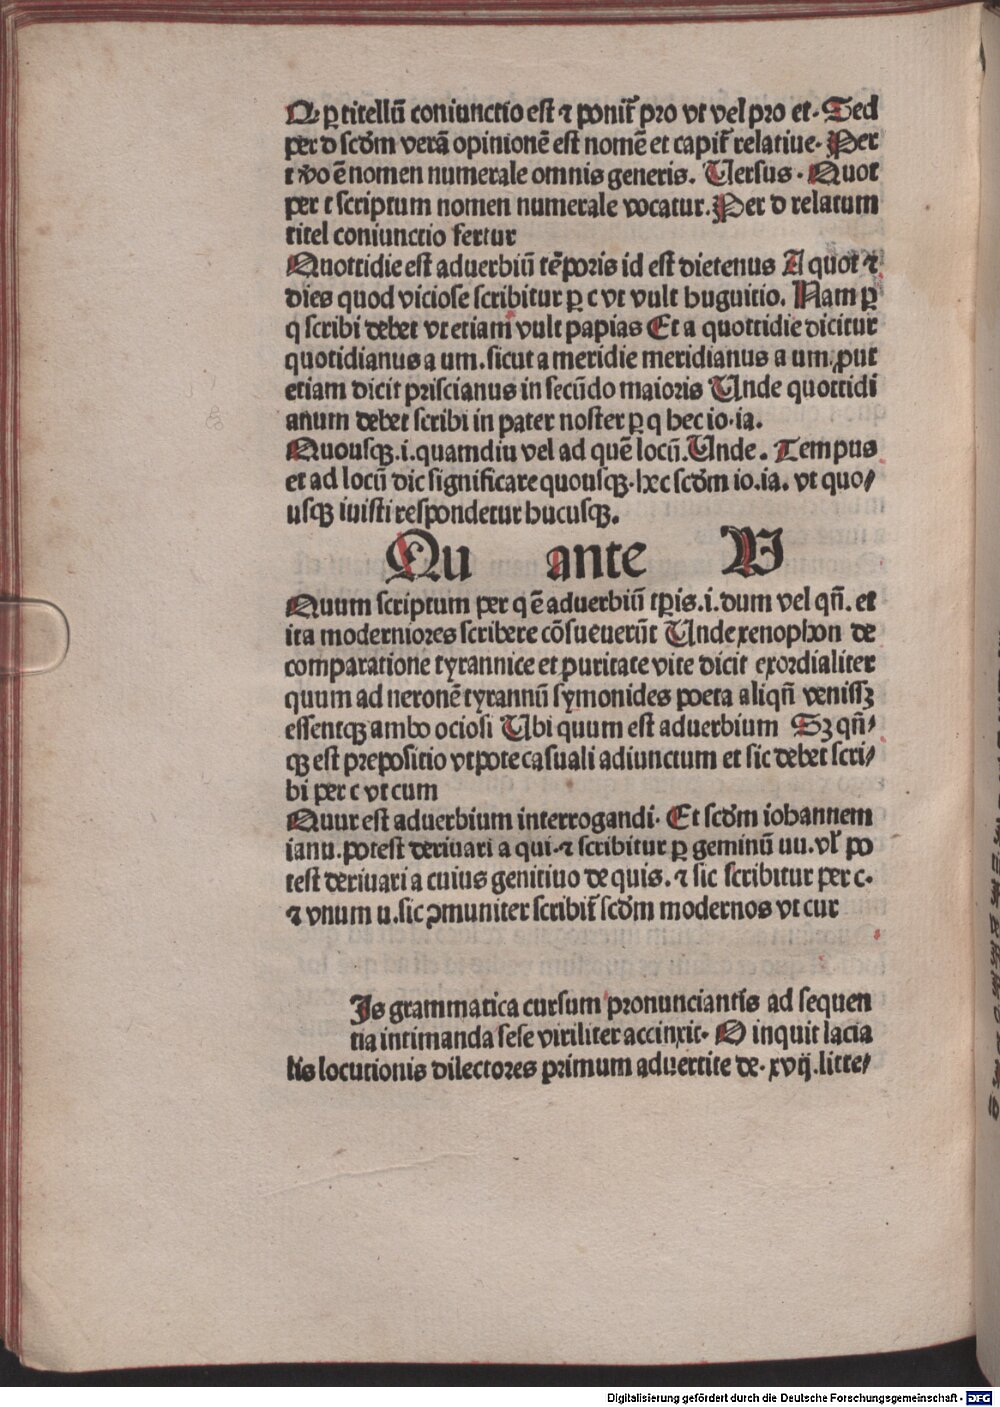 Q ꝑ titellū coniunctio est ⁊ ponit̄ pro vt vel pro et. Sed
per d scd̄m verā opinionē est nomē et capit̄ relatiue. Per
t v̄o ē nomen numerale omnis generis. Uersus. Quot
per t scriptum nomen numerale vocatur. Per d relatum
titel coniunctio fertur
Quottidie est aduerbiū tēporis id est dietenus A quot ⁊
dies quod viciose scribitur ꝑ c vt vult huguitio. Nam ꝑ
q scribi debet vt etiam vult papias Et a quottidie dicitur
quotidianus a um. sicut a meridie meridianus a um. ꝓut
etiam dicit priscianus in secūdo maioris Unde quottidi
anum debet scribi in pater noster ꝑ q hec io. ia.
Quousqꝫ .i. quamdiu vel ad quē locū. Unde. Tempus
et ad locū dic significare quousqꝫ. hec scd̄m io. ia. vt quo⸗
usqꝫ iuisti respondetur hucusqꝫ.
Qu ante U
Quum scriptum per q ē aduerbiū tꝑis .i. dum vel qn̄. et
ita moderniores scribere cōsueuerūt Unde xenophon de
comparatione tyrannice et puritate vite dicit exordialiter
quum ad neronē tyrannū symonides poeta aliqn̄ venissꝫ
essentqꝫ ambo ociosi Ubi quum est aduerbium Sꝫ qn̄⸗
qꝫ est prepositio vtpote casuali adiunctum et sic debet scri⸗
bi per c vt cum
Quur est aduerbium interrogandi. Et scd̄m iohannem
ianu. potest deriuari a qui. ⁊ scribitur ꝑ geminū uu. vl̄ po
test deriuari a cuius genitiuo de quis. ⁊ sic scribitur per c.
⁊ vnum u. sic ꝯmuniter scribit̄ scd̄m modernos vt cur
Is grammatica cursum pronunciantis ad sequen
tia intimanda sese viriliter accinxit. O inquit lacia
lis locutionis dilectores primum aduertite de. xvij. litte⸗
Digitalisierung gefördert durch die Deutsche Forschungsgemeinschaft - DFG